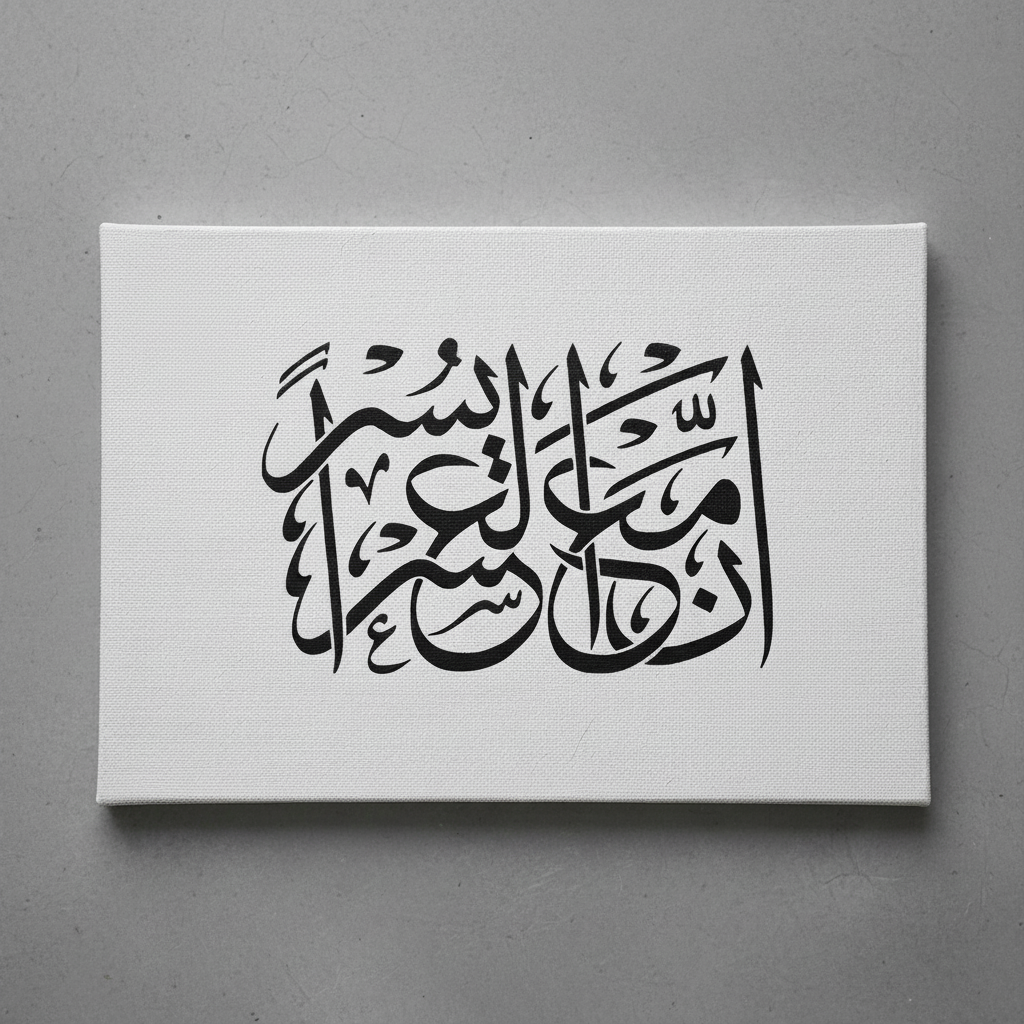 انّ مع العسر يسراً